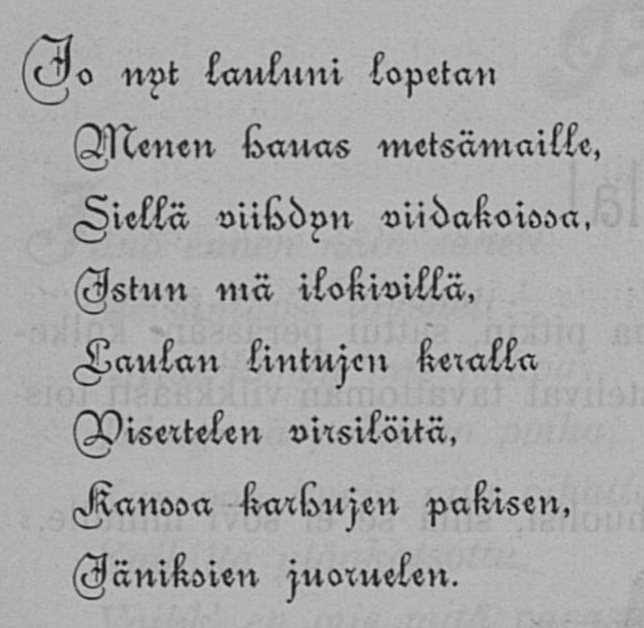 Jo nyt lauluni lopetan
Menen hauas metsämaille,
Siellä viihdyn viidakoissa,
Istun mä ilokivillä,
Laulan lintujen keralla
Visertelen virsilöitä,
Kanssa karhujen pakisen,
Jäniksien juoruelen.